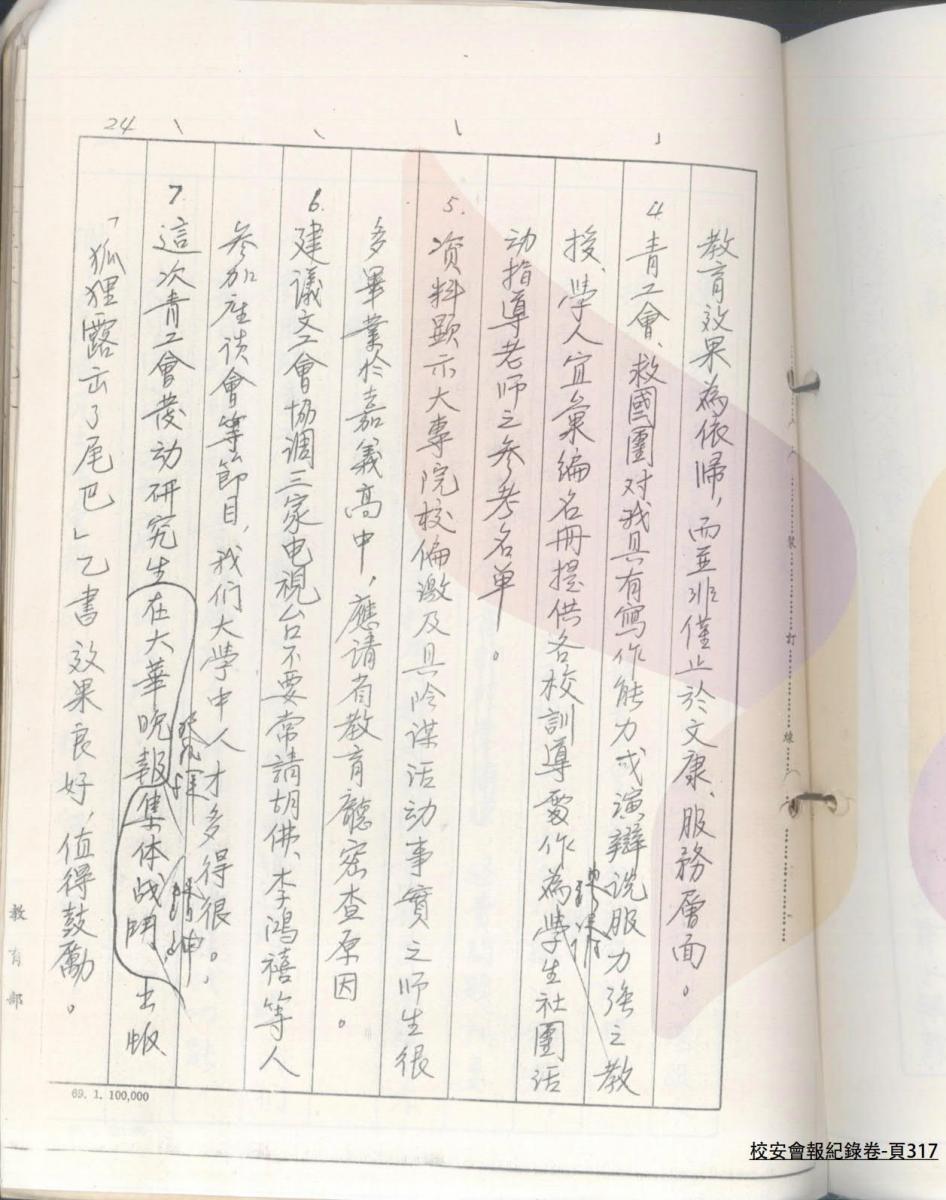 24
教育效果為依歸，而並非僅止於文康、服務層面。
4. 青工會、救國團对我具有寫作能力或演辯说服力強之教
授、學人宜彙編名冊提供各校訓導單位作為學生社團活
动指導老师之参考名单。
5. 资料顯示大專院校偏激及具陰谋活动事實之师生很
多畢業於嘉義高中，應請省教育廳密查原因。
6. 建議文工會协调三家电視台不要常請胡佛、李鴻禧等人
参加座谈會等節目，我们大学中人才多得很。
7. 這次青工會发动研究生在大華晚報集体战鬥，出版
「狐狸露出了尾巴」乙書效果良好，值得鼓勵。
教育部
裝訂線
69. 1. 100,000
校安會報紀錄卷-頁317